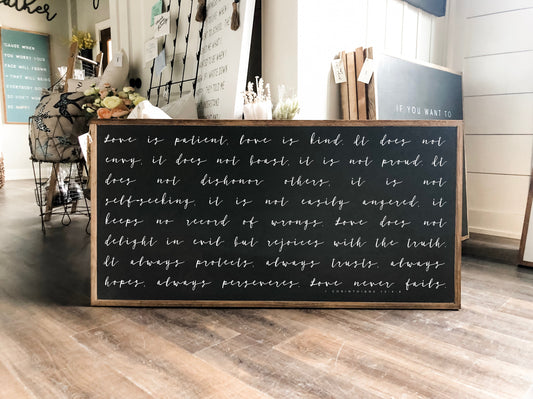 eather
CAUSE WHEN
YOU WORRY YOUR
FACE WILL FROWN
THAT WILL BRING
EVERYBODY DO
BE HAPPY
IF YOU WANT TO
Love is patient, love is kind. It does not
envy, it does not boast, it is not proud. It
does not dishonor others, it is not
self-seeking, it is not easily angered, it
keeps no record of wrongs. Love does not
delight in evil but rejoices with the truth.
It always protects, always trusts, always
hopes, always perseveres. Love never fails.
1 CORINTHIANS 13:4-8